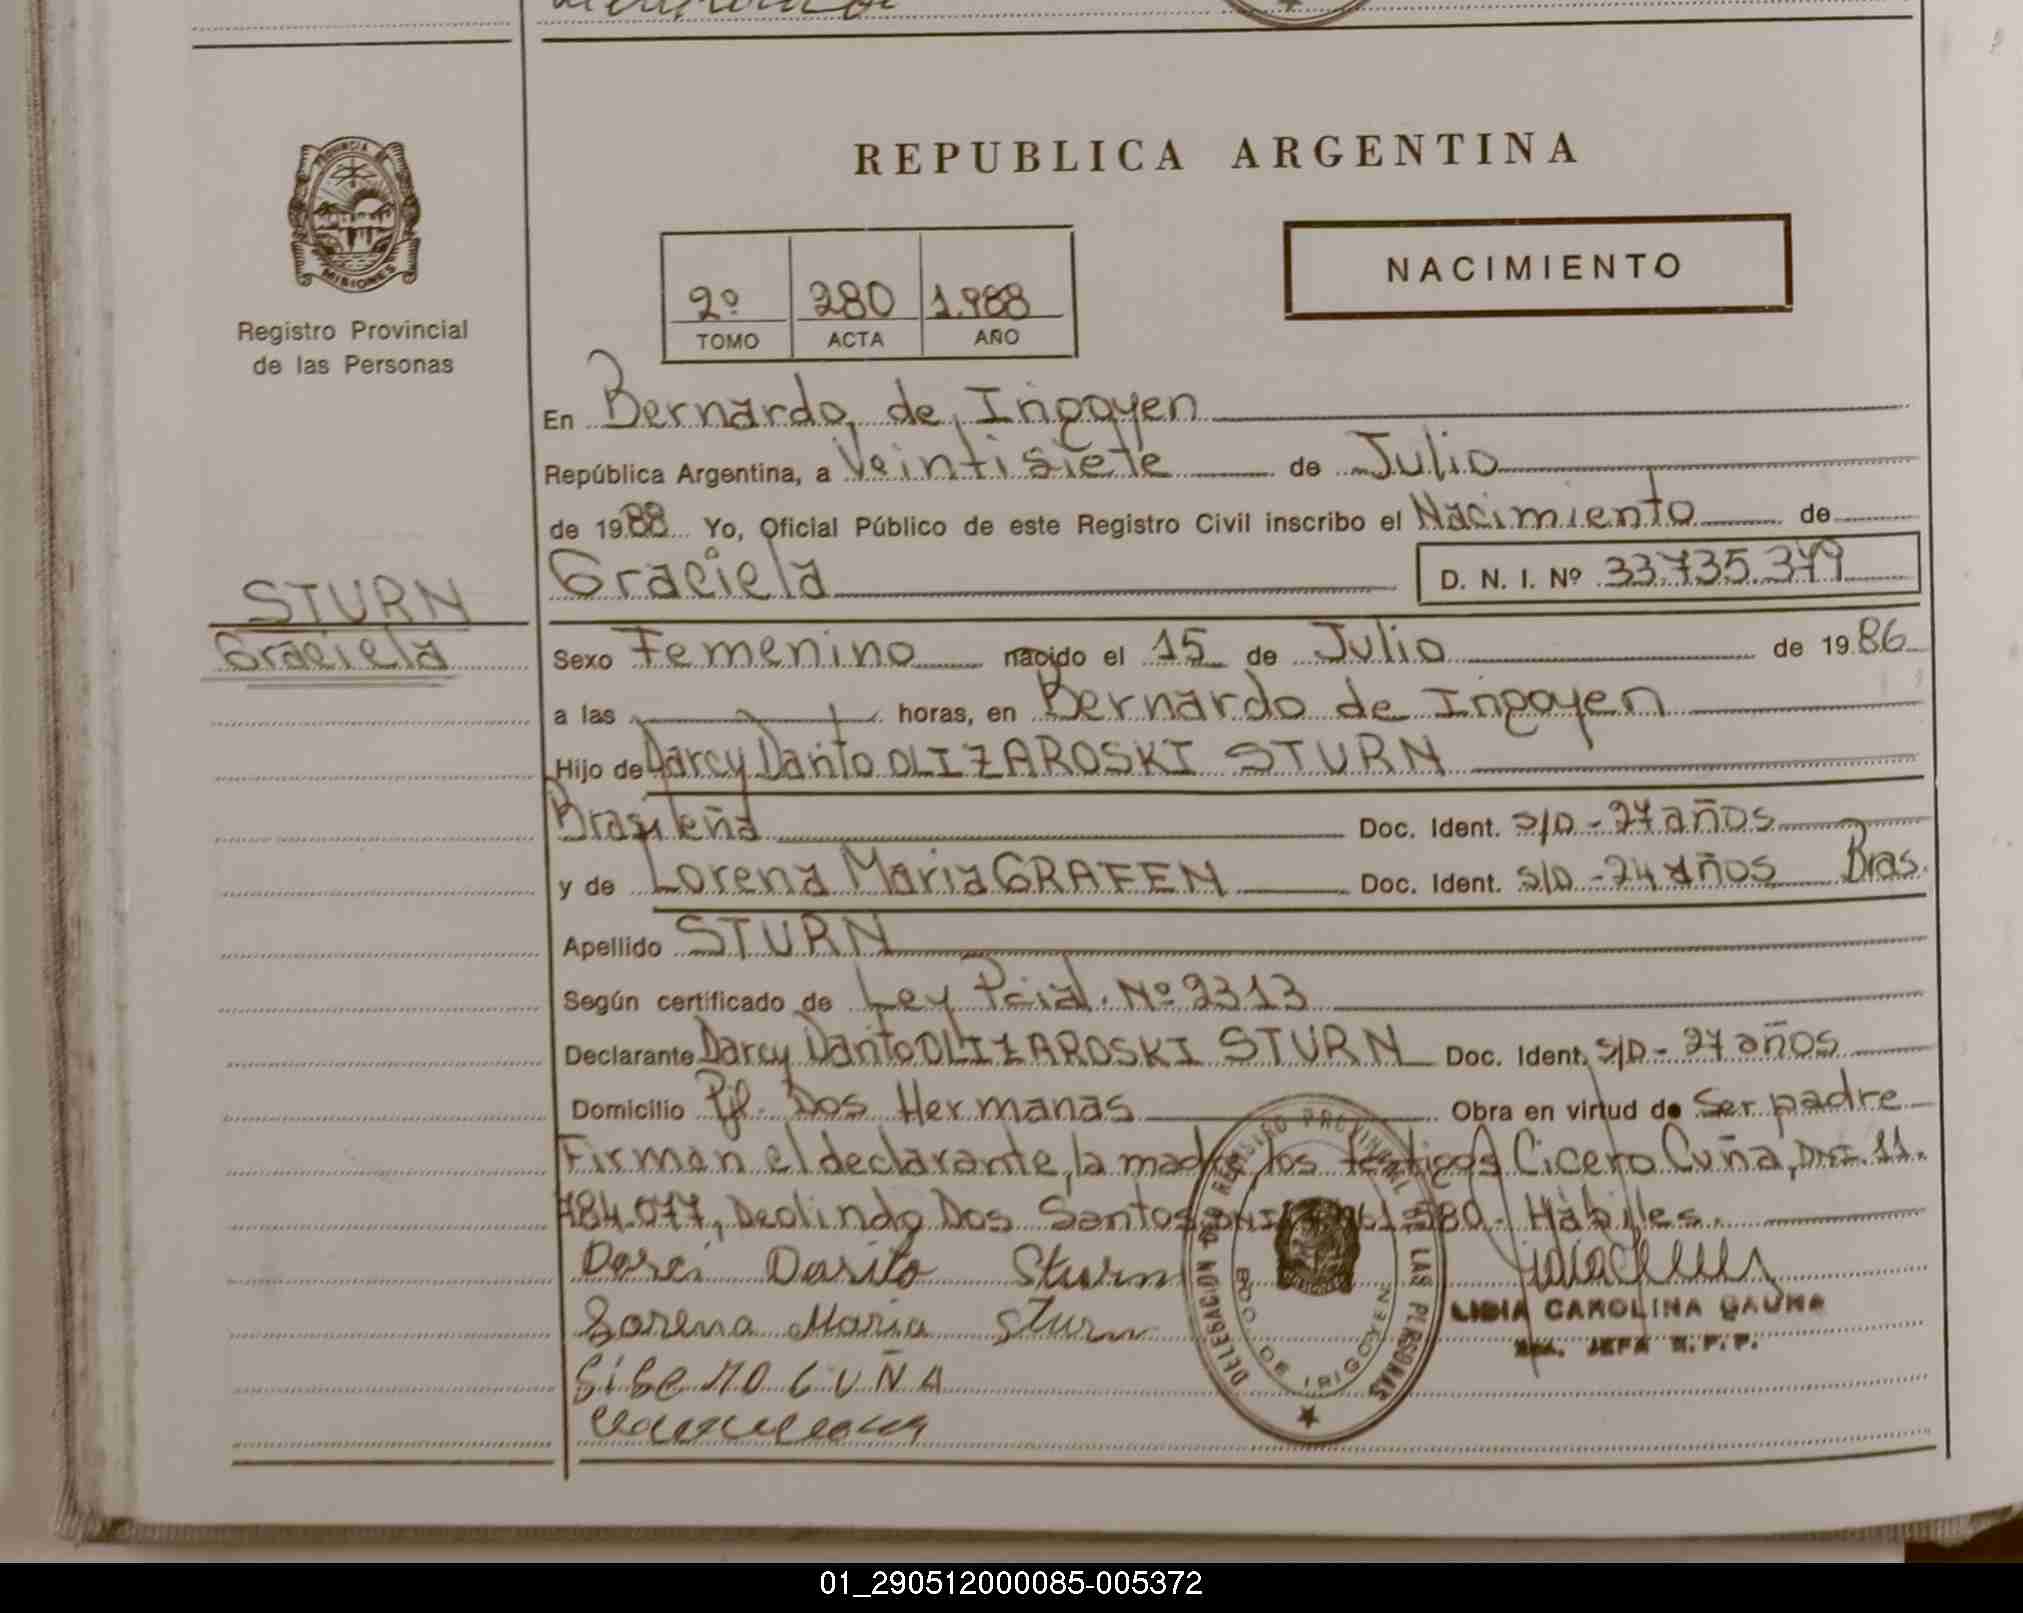 PROVINCIA DE
MISIONES
Registro Provincial
de las Personas
STURN
Graciela
REPUBLICA ARGENTINA
NACIMIENTO
2º 280 1.988
TOMO ACTA AÑO
En Bernardo de Irigoyen
República Argentina, a Veintisiete de Julio
de 1988 Yo, Oficial Público de este Registro Civil inscribo el Nacimiento de
Graciela D. N. I. Nº 33735.379
Sexo Femenino nacido el 15 de Julio de 1986
a las horas, en Bernardo de Irigoyen
Hijo de Darcy Danto OLIZAROSKI STURN
Brasileña Doc. Ident. S/D - 27 años
y de Lorena Maria GRAFEN Doc. Ident. S/D - 24 años Bras.
Apellido STURN
Según certificado de Ley Pcial. Nº 2313
Declarante Darcy Danto OLIZAROSKI STURN Doc. Ident. S/D - 27 años
Domicilio Pje. Dos Hermanas Obra en virtud de Ser padre
Firman el declarante, la madre, los testigos Cicero Cuña, DNI. 11.
784.077, Deolindo Dos Santos DNI 580. Hábiles.
Darci Darito Sturm
Lorena Maria Sturn
SiSeRO CUÑA
DELEGACION DEL REGISTRO PROVINCIAL DE LAS PERSONAS
BDO. DE IRIGOYEN
LIDIA CAROLINA GAUNA
JEFA R.P.P.
01_290512000085-005372